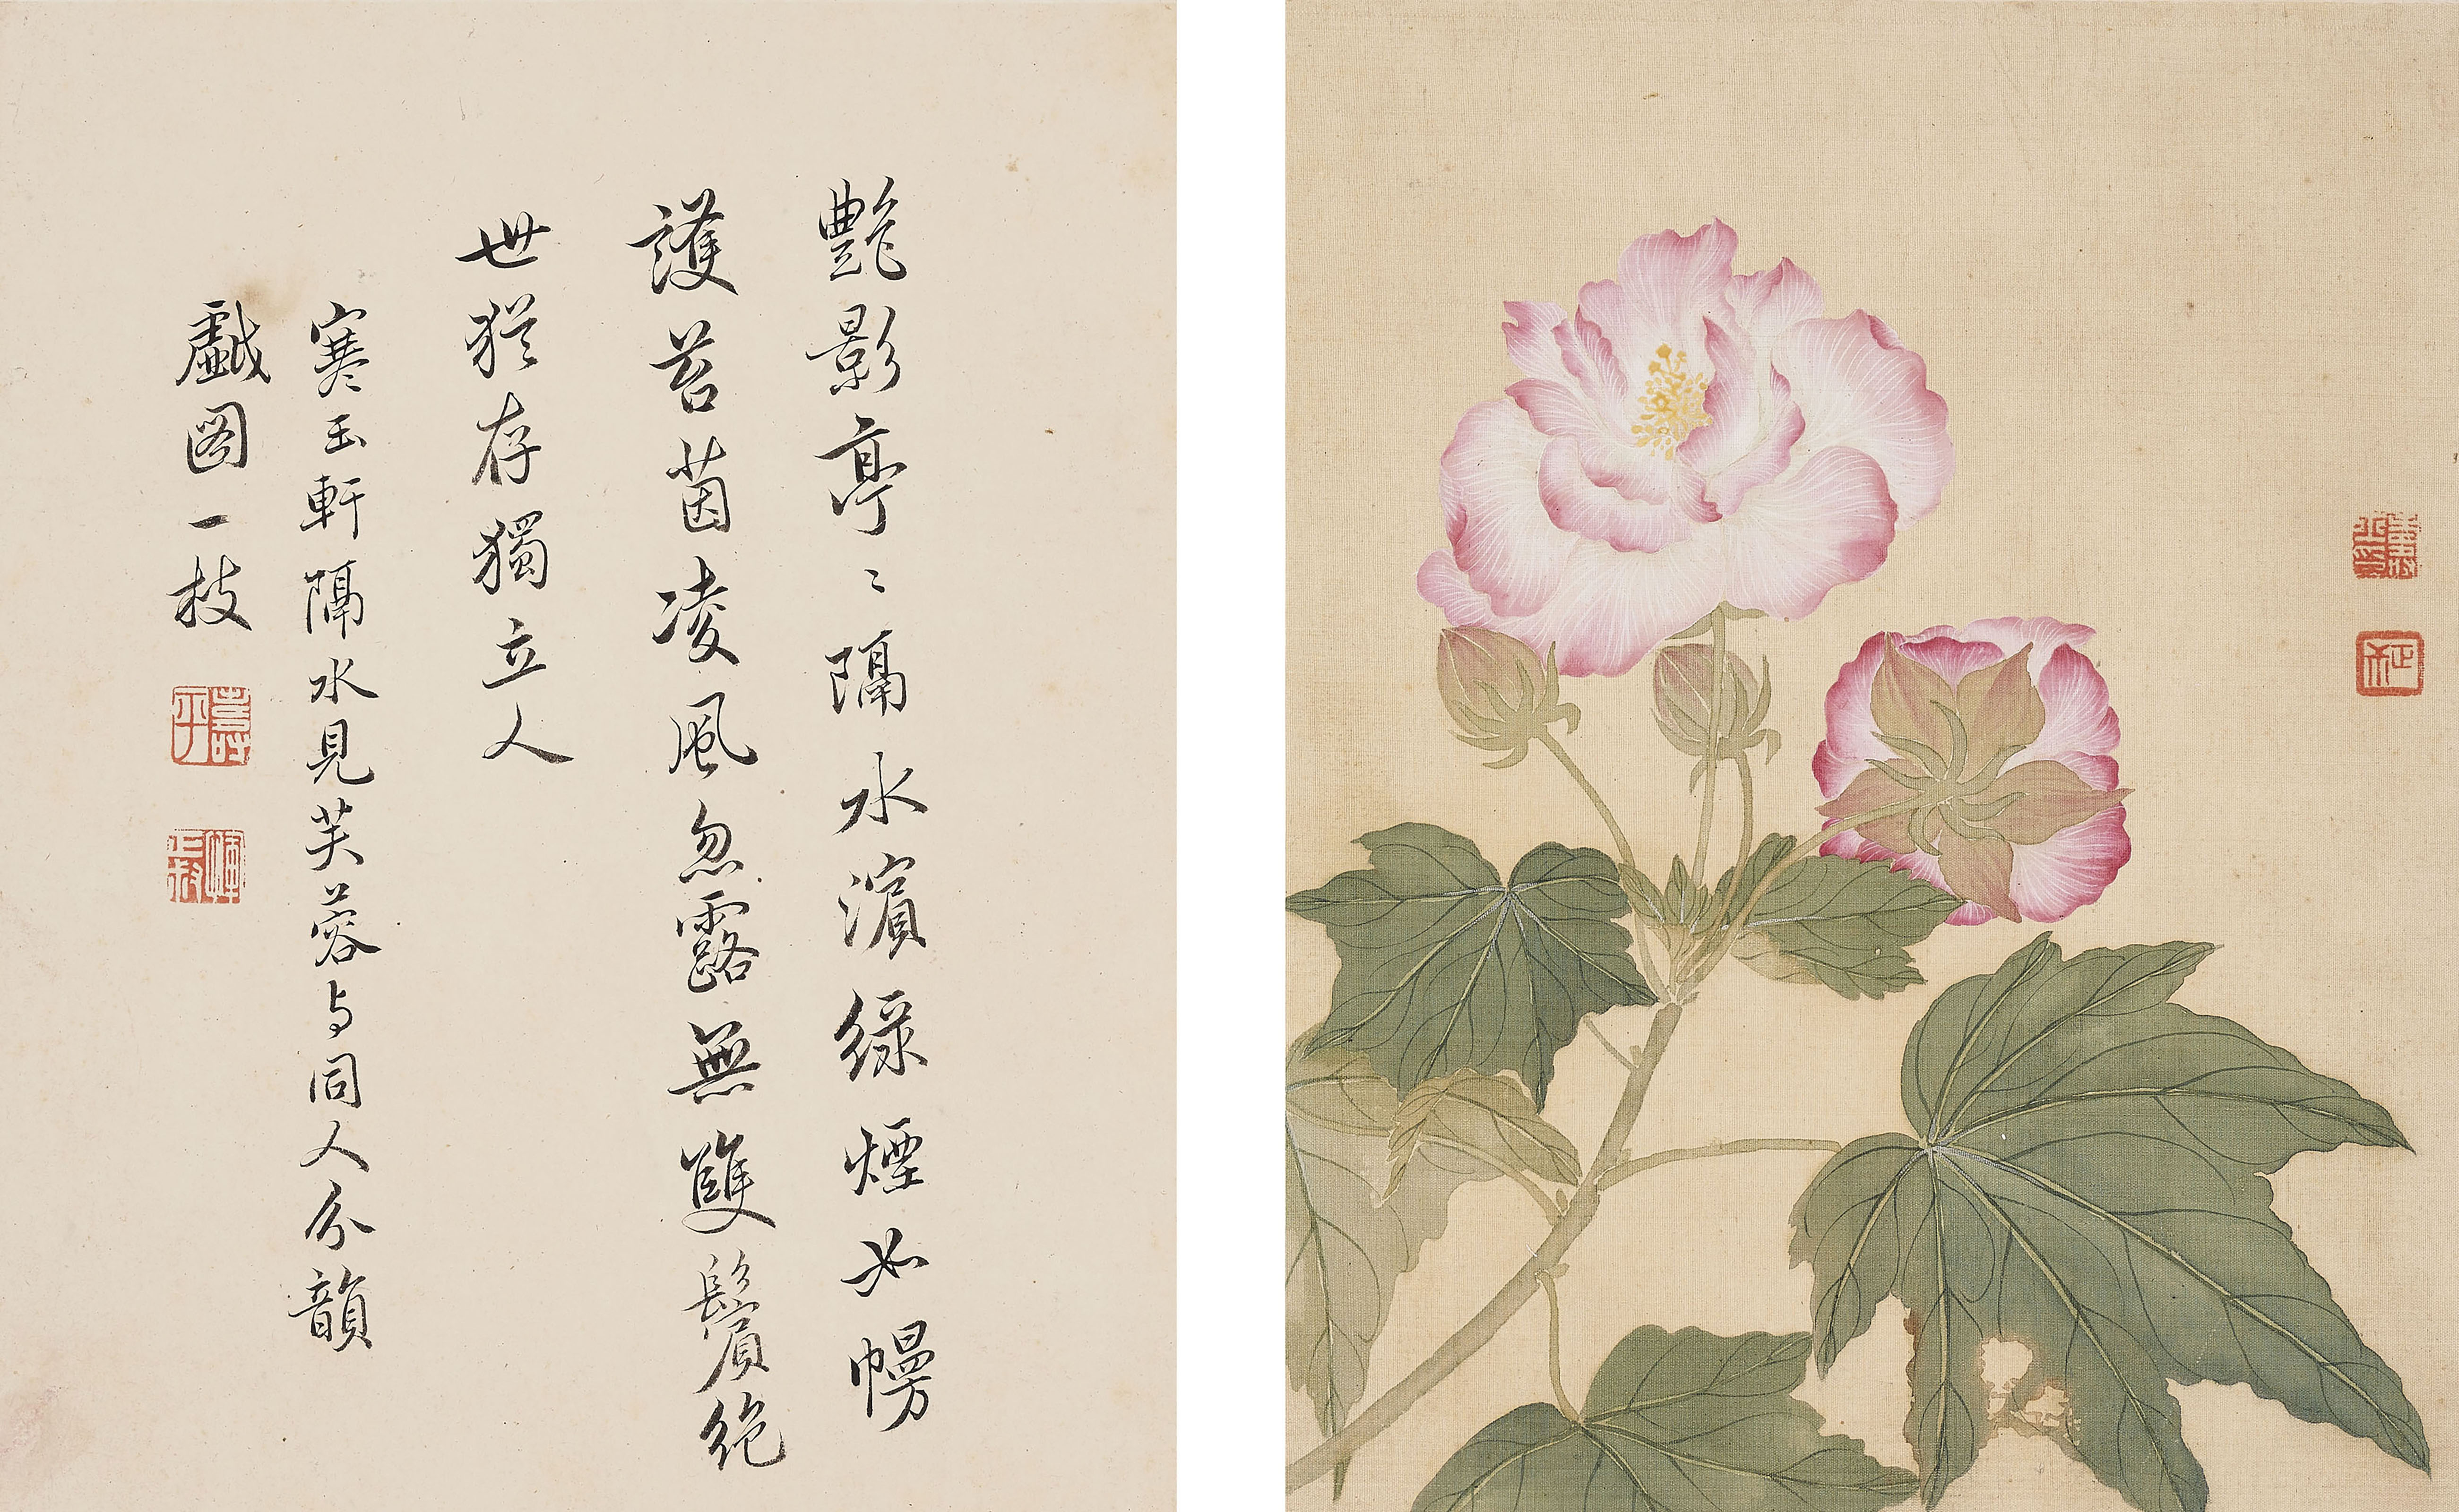 艷影亭〻隔水濱綠煙如幔
護苔茵凌風忽露無雙鬢絶
世猶存獨立人
寒玉軒隔水見芙蓉与同人分韻
戲圖一枝
壽平